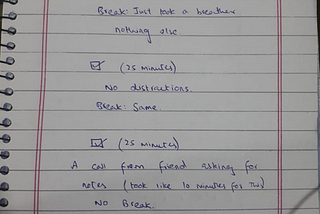 Break: Just took a breather
nothing else
☑ (25 minutes)
No distractions.
Break: Same.
☑ (25 minutes)
A call from friend asking for
notes (took like 10 minutes for this)
NO Break.